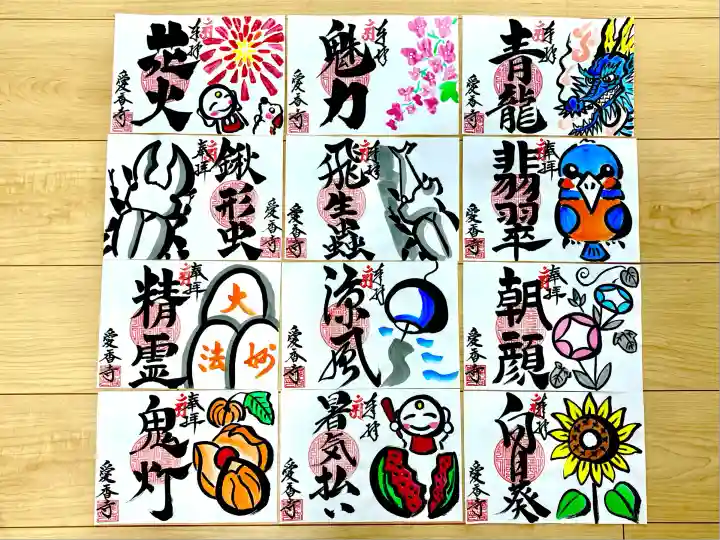 奉拝
花火
愛香寺
奉拝
魅力
愛香寺
奉拝
青龍
愛香寺
奉拝
鍬形虫
愛香寺
奉拝
飛生蟲
愛香寺
奉拝
翡翠
愛香寺
奉拝
精霊
愛香寺
大
妙
法
奉拝
涼風
愛香寺
奉拝
朝顔
愛香寺
奉拝
鬼灯
愛香寺
奉拝
暑気払い
愛香寺
奉拝
向日葵
愛香寺